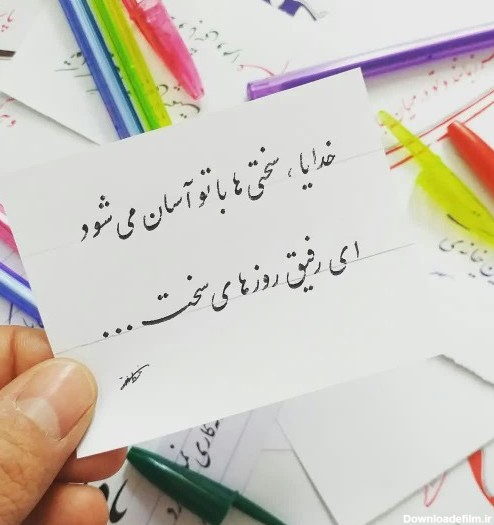 خدایا ، سختی ها با تو آسان می شود
ای رفیق روزهای سخت ...
Downloadefilm.ir